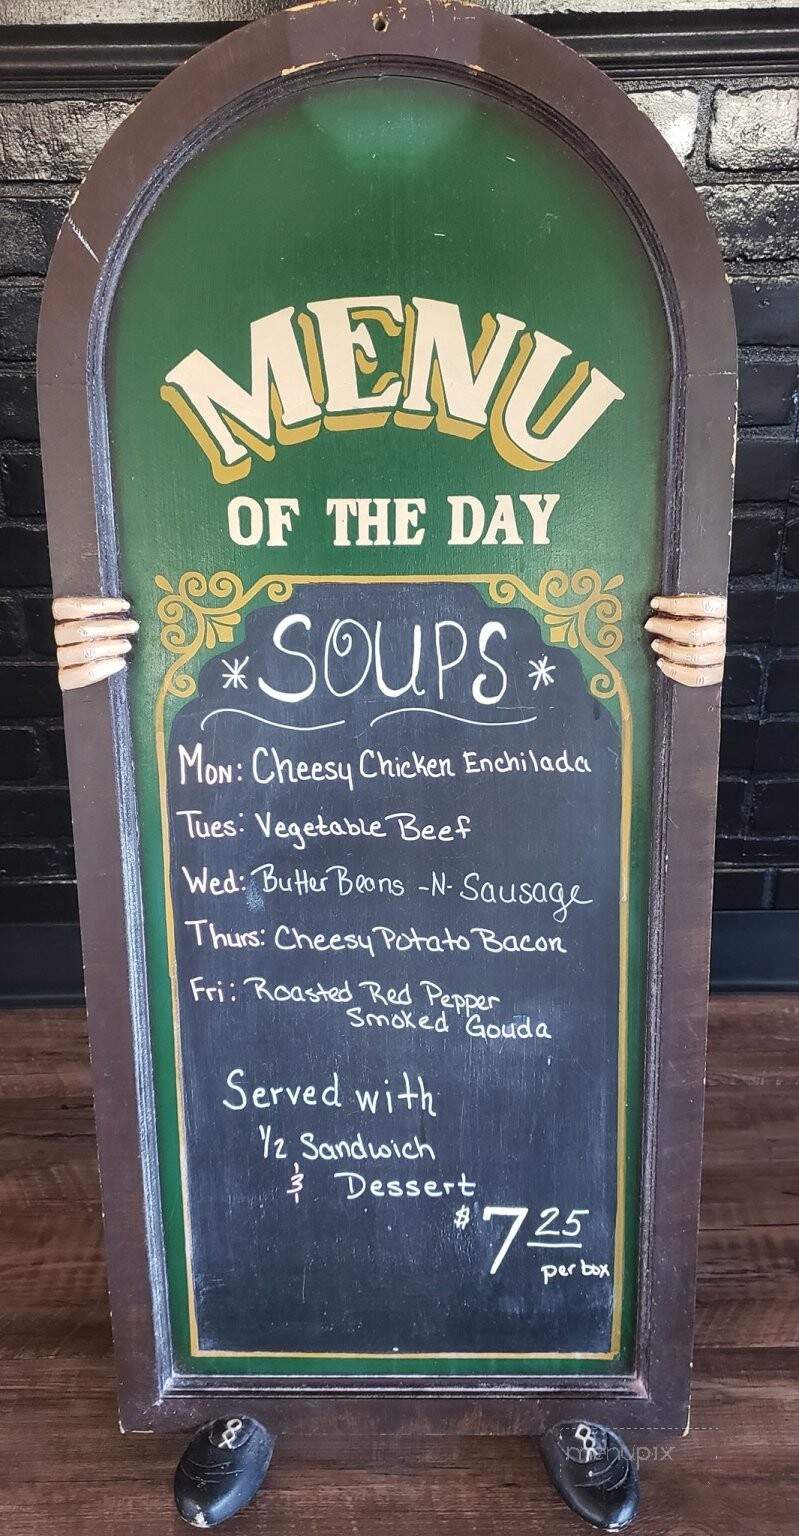 MENU
OF THE DAY
* SOUPS *
Mon: Cheesy Chicken Enchilada
Tues: Vegetable Beef
Wed: Butter Beans -N- Sausage
Thurs: Cheesy Potato Bacon
Fri: Roasted Red Pepper
Smoked Gouda
Served with
1/2 Sandwich
& Dessert
$7.25
per box
menupix